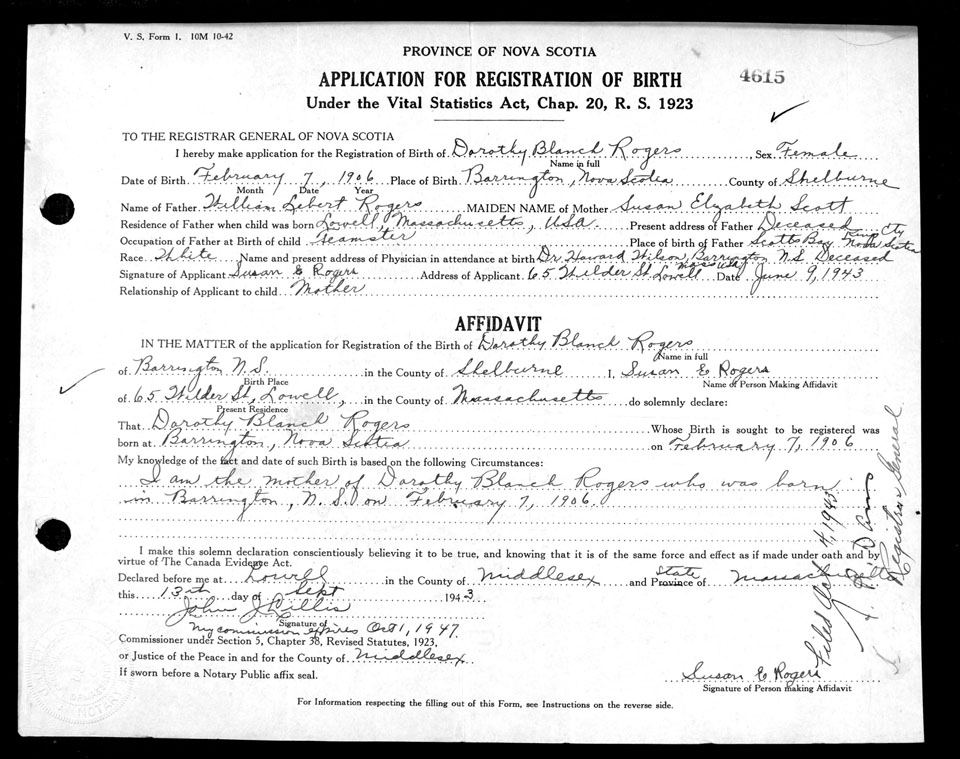 V. S. Form 1. 10M 10-42
PROVINCE OF NOVA SCOTIA
APPLICATION FOR REGISTRATION OF BIRTH
4615
Under the Vital Statistics Act, Chap. 20, R. S. 1923
TO THE REGISTRAR GENERAL OF NOVA SCOTIA
I hereby make application for the Registration of Birth of Dorothy Blanch Rogers, Sex Female
Name in full
Date of Birth February 7, 1906 Place of Birth Barrington, Nova Scotia County of Shelburne
Month Date Year
Name of Father William Lebert Rogers MAIDEN NAME of Mother Susan Elizabeth Scott
Residence of Father when child was born Lowell, Massachusetts, USA. Present address of Father Deceased
Kings Cty
Occupation of Father at Birth of child Teamster Place of birth of Father Scotts Bay Nova Scotia
Race White Name and present address of Physician in attendance at birth Dr. Howard Wilson, Barrington N.S. Deceased
Signature of Applicant Susan E Rogers Address of Applicant 65 Wilder St Lowell Mass USA Date June 9, 1943
Relationship of Applicant to child Mother
AFFIDAVIT
IN THE MATTER of the application for Registration of the Birth of Dorothy Blanch Rogers
Name in full
of Barrington N.S. in the County of Shelburne I, Susan E Rogers
Birth Place Name of Person Making Affidavit
of 65 Wilder St, Lowell, in the County of Massachusetts do solemnly declare:
Present Residence
That Dorothy Blanch Rogers Whose Birth is sought to be registered was
born at Barrington, Nova Scotia on February 7, 1906
My knowledge of the fact and date of such Birth is based on the following Circumstances:
I am the mother of Dorothy Blanch Rogers who was born
in Barrington, N.S. on February 7, 1906.
I make this solemn declaration conscientiously believing it to be true, and knowing that it is of the same force and effect as if made under oath and by
virtue of The Canada Evidence Act.
Declared before me at Lowell in the County of Middlesex and State Province of Massachusetts
this 13th day of Sept 1943
John J Willis
Signature of
My commission expires Oct 1, 1947
Commissioner under Section 5, Chapter 38, Revised Statutes, 1923,
or Justice of the Peace in and for the County of Middlesex
If sworn before a Notary Public affix seal.
Susan E Rogers
Signature of Person making Affidavit
For Information respecting the filling out of this Form, see Instructions on the reverse side.
Filed Oct 4, 1943
Registrar General